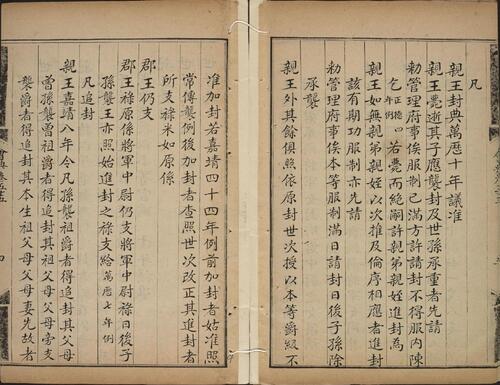 凡
親王封典萬曆十年議准
親王薨逝其子應襲封及世孫承重者先請
勅管理府事俟服制已滿方許請封不得服內陳
乞正德四年例若薨而絕嗣許親弟親姪進封為
親王如無親弟親姪以次推及倫序相應者進封
該有期功服制亦先請
勅管理府事俟本等服制滿日請封日後子孫除
承襲
親王外其餘俱照依原封世次授以本等爵級不
准加封若嘉靖四十四年例前加封者姑准照
常傳襲例後加封者查照世次改正其進封者
所支祿米如原係
郡王仍支
郡王祿原係將軍中尉仍支將軍中尉祿日後子
孫襲王亦照始進封之祿支給萬曆七年例
凡追封
親王嘉靖八年令凡孫襲祖爵者得追封其父母
曾孫襲曾祖爵者得追封其祖父母父母旁支
襲爵者得追封其本生祖父母父母妻先故者